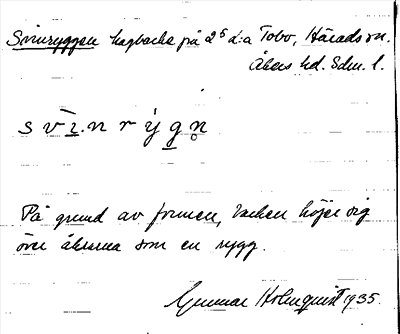 Svinryggen hagbacke på 2⁵ d:a Tobo, Härads sn.
Åkers hd. Sdm. l.
s v ī . n r ý g n̥
På grund av formen, backen höjer sig
över åkrarna som en rygg.
Gunnar Holmquist 1935.